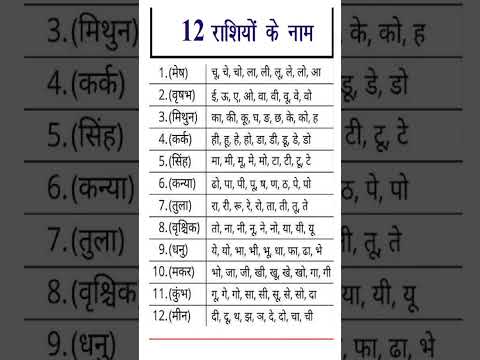 12 राशियों के नाम
1.(मेष) चू, चे, चो, ला, ली, लू, ले, लो, आ
2.(वृषभ) ई, ऊ, ए, ओ, वा, वी, वू, वे, वो
3.(मिथुन) का, की, कू, घ, ङ, छ, के, को, ह
4.(कर्क) ही, हू, हे, हो, डा, डी, डू, डे, डो
5.(सिंह) मा, मी, मू, मे, मो, टा, टी, टू, टे
6.(कन्या) ढो, पा, पी, पू, ष, ण, ठ, पे, पो
7.(तुला) रा, री, रू, रे, रो, ता, ती, तू, ते
8.(वृश्चिक) तो, ना, नी, नू, ने, नो, या, यी, यू
9.(धनु) ये, यो, भा, भी, भू, धा, फा, ढा, भे
10.(मकर) भो, जा, जी, खी, खू, खे, खो, गा, गी
11.(कुंभ) गू, गे, गो, सा, सी, सू, से, सो, दा
12.(मीन) दी, दू, थ, झ, ञ, दे, दो, चा, ची
3.(मिथुन)
4.(कर्क)
5.(सिंह)
6.(कन्या)
7.(तुला)
8.(वृश्चिक)
9.(धनु)
के, को, ह
डू, डे, डो
टी, टू, टे
ठ, पे, पो
ती, तू, ते
या, यी, यू
फा, ढा, भे